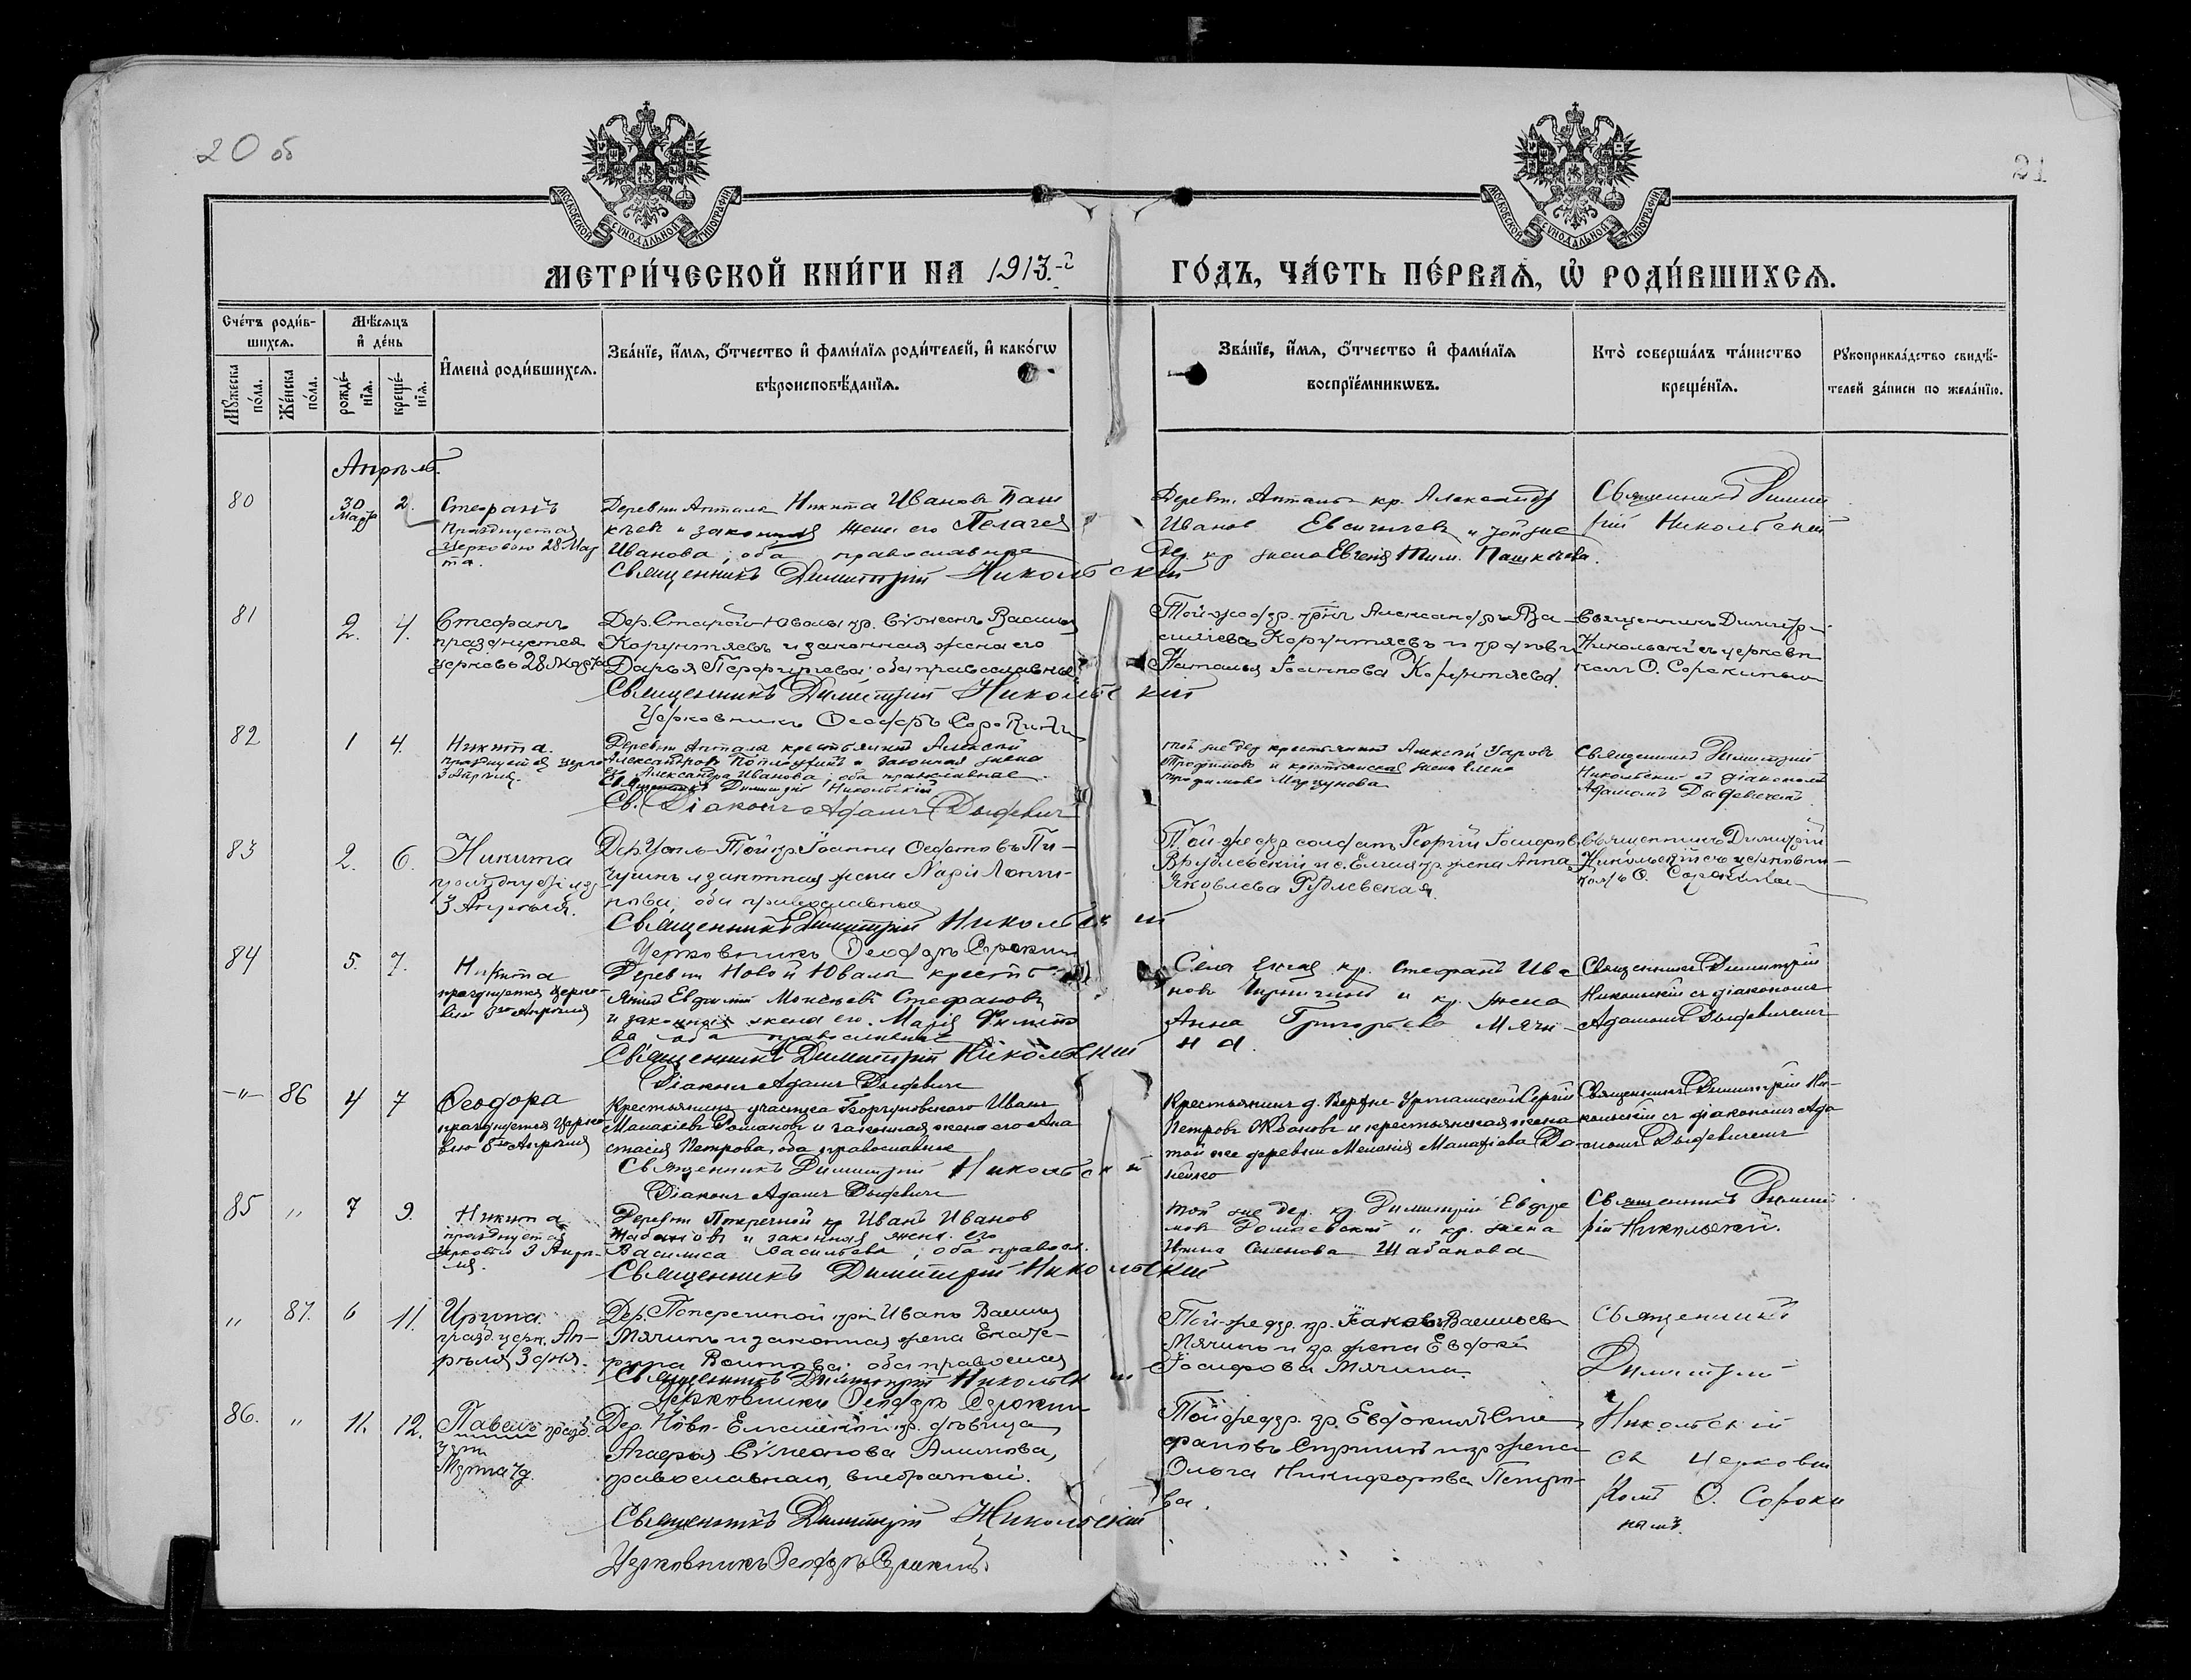 20 об
21
МОСКОВСКОЙ СѴНОДАЛЬНОЙ ТИПОГРАФІИ.
МОСКОВСКОЙ СѴНОДАЛЬНОЙ ТИПОГРАФІИ.
МЕТРИ́ЧЕСКОЙ КНИ́ГИ НА 1913.-й
ГО́ДЪ, ЧА́СТЬ ПЕ́РВАѦ, Ѡ҆ РОДИ́ВШИХСѦ.
Сче́тъ роди́в-
шихсѧ.
Мꙋ́жеска по́ла.
Же́нска по́ла.
Мѣ́сѧцъ
и҆ де́нь
рожде́-
нїѧ.
креще́-
нїѧ.
И҆мена̀ роди́вшихсѧ.
Зва́нїе, и҆́мѧ, ѻ҆́тчество и҆ фами́лїѧ роди́телей, и҆ како́гѡ
вѣроисповѣ́данїѧ.
Зва́нїе, и҆́мѧ, ѻ҆́тчество и҆ фами́лїѧ
воспрїе́мникѡвъ.
Кто̀ соверша́лъ та́инство
креще́нїѧ.
Рꙋкоприкла́дство свидѣ́-
телей за́писи по жела́нїю.
Апрѣль
80
30
Марта
2.
Стефанъ
празднуется
церковью 28 Мар
та.
Деревни Аптала Никита Иванов Паш
кѣевъ и законная жена его Пелагея
Иванова; оба православные
Священникъ Димитрій Никольскій
Иванов Евсигнеев и той же
дер. кр жена Евгенія Тим. Пашкѣева.
Священникъ Димит
рій Никольскій
81
2.
4.
Стефанъ
празднуется
церковью 28 Марта
Дер. Старой-Ювалы кр. Сѵмеонъ Васильев
Коргутяевъ и законная жена его
Дарья Перфирьева: оба православные
Священникъ Димитрій Никольскій
Церковникъ Ѳеодоръ Сорокинъ
Той-же дер. кр-нъ Александръ Ва-
сильевъ Коргунтяевъ
Наталья Іоаннова
Священникъ Димитрій
Никольскій съ церковни
комъ Ѳ. Сорокинымъ
82
1
4.
Никита.
празднуется церко
3 Апрѣля.
Деревни Аптала крестьянинъ Алексѣй
Александровъ и законная жена
его Александра Иванова; оба православные.
Священникъ Димитрій Никольскій
Св. Діаконъ Адамъ Дыдевичъ
той же дер крестьянинъ Алексѣй Уаровъ
Трофимовъ и крестьянская жена Елена
Трофимова
Священникъ Димитрій
Никольскій съ діакономъ
Адамомъ Дыдевичемъ.
83
2.
6.
Никита
3 Апрѣля.
Дер. Усть-Той кр Іоаннъ Ѳедотовъ Пи-
чугинъ и законная жена Марія Логи-
нова; оба православные
Священникъ Димитрій Никольскій
Церковникъ Ѳеодоръ Сорокинъ
Той-же дер солдатъ Георгій Іосифов
Врублевскій и с. Елгая кр жена Анна
Яковлева
Священникъ Димитрій
Никольскій съ церковни-
комъ Ѳ. Сорокинымъ
84
5.
7.
Никита
празднуется церко-
вью 3го Апрѣля
Деревни Новой Ювалы крестьь
янинъ Стефановъ
и законная жена его Марія Филипо
ва оба православные
Священникъ Димитрій Никольскій
Діаконъ Адамъ Дыдевичъ
Села Елгая кр. Стефанъ Ива
новъ и кр. жена
Анна Григорьева Мячи
на.
Священникъ Димитрій
Никольскій съ діакономъ
Адамомъ Дыдевичемъ
-"-
86
4
7
Ѳеодора
празднуется церко
вью 5го Апрѣля
Крестьянинъ участка Иванъ
Романовъ и законная жена его Ана
стасія Петрова, оба православные
Священникъ Димитрій Никольскій
Діаконъ Адамъ Дыдевичъ
Крестьянинъ д. Верхне- Сергій
Петровъ и крестьянская жена
той же деревни Меланія
Священникъ Димитрій Ни-
кольскій съ діакономъ Ада
момъ Дыдевичемъ
85
"
7
9.
Никита
празднуется
церковью 3 Апрѣ-
ля.
Деревни Поперечной кр Иванъ Иванов
Шабановъ и законная жена его
Василиса Васильева; оба правосл.
Священникъ Димитрій Никольскій
той же дер. кр. Димитрій
и кр. жена
Семенова Шабанова
Священникъ Димит
рій Никольскій.
"
87.
6
11.
Ирина.
празд. церк. Ап-
рѣля 3 дня.
Дер. Поперечной крн Иванъ Васильев
Мячинъ и законная жена Екате-
рина оба православ
Священникъ Димитрій Никольскій
Церковникъ Ѳеодоръ Сорокинъ
Той-же дер. кр. Іаковъ Васильевъ
Мячинъ и кр. жена Евдокі
Іосифова Мячина.
Священникъ
Димитрій
86.
"
11.
12.
Павелъ празд.
церк
Марта 7д.
Дер. Ново- кр. дѣвица
Агафья Сѵмеонова
православная, внебрачный.
Священникъ Димитрій Никольскій
Церковникъ Ѳеодоръ Сорокинъ.
Той же дер. кр. Евдокимъ Сте
фановъ и кр жена
Ольга Никифорова
Никольскій
съ церковни
комъ Ѳ. Сороки
нымъ.